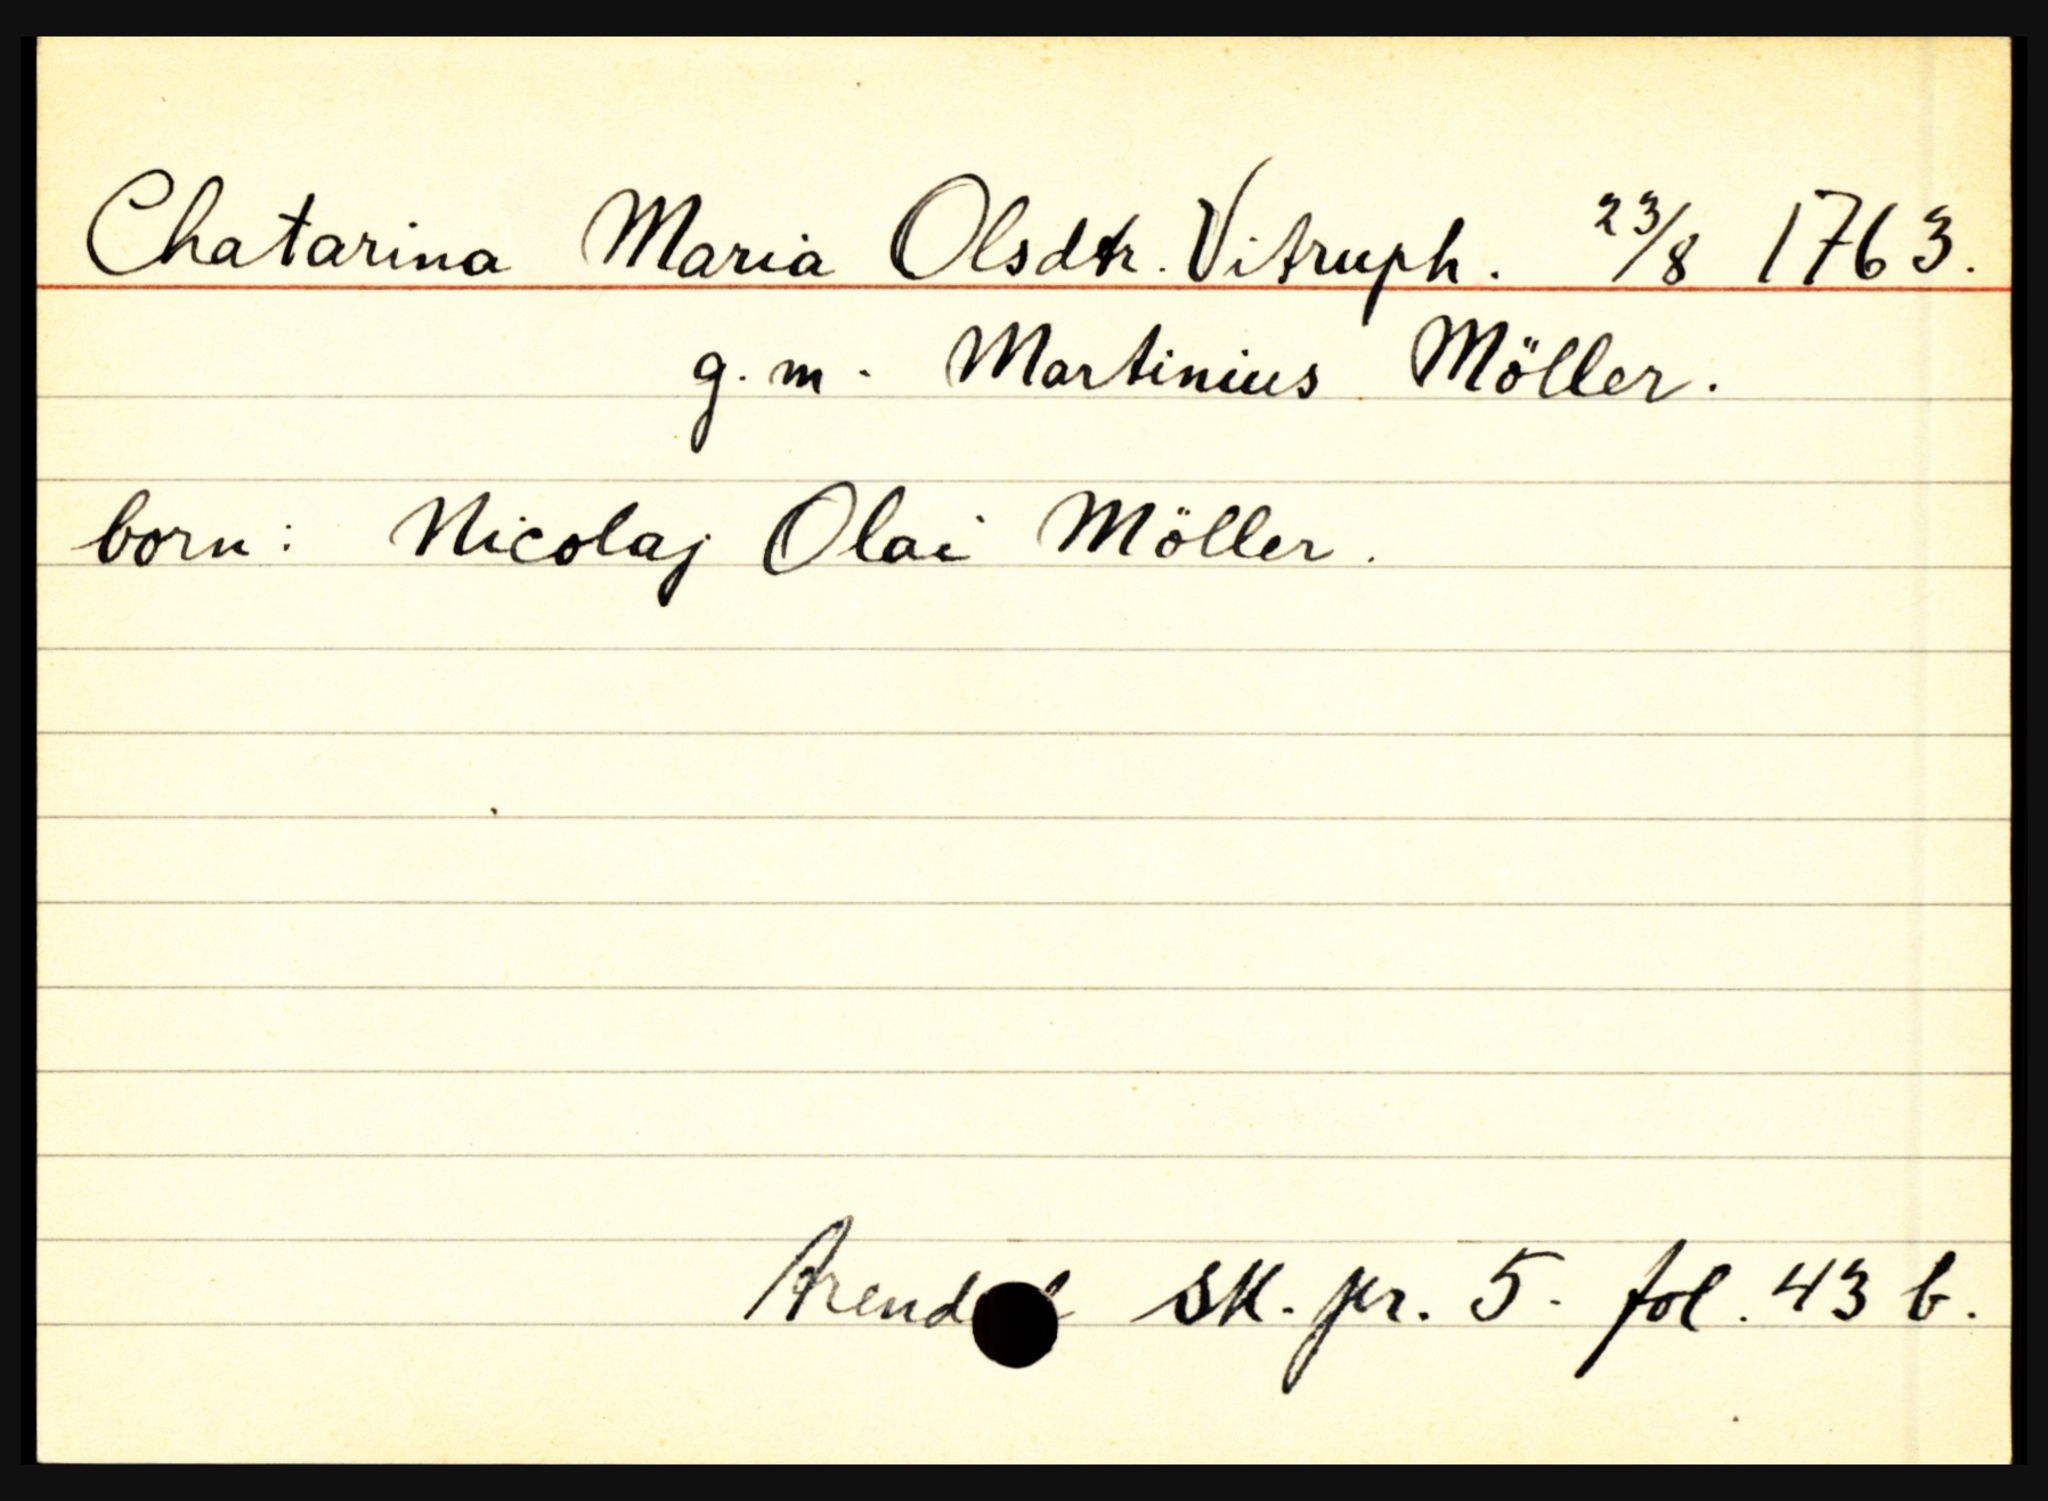 Chatarina Maria Olsdtr. Vitruph. 23/8 1763.
g. m. Martinius Möller.
born: Nicolaj Olai Möller.
Arendal sk. pr. 5. fol. 43 b.